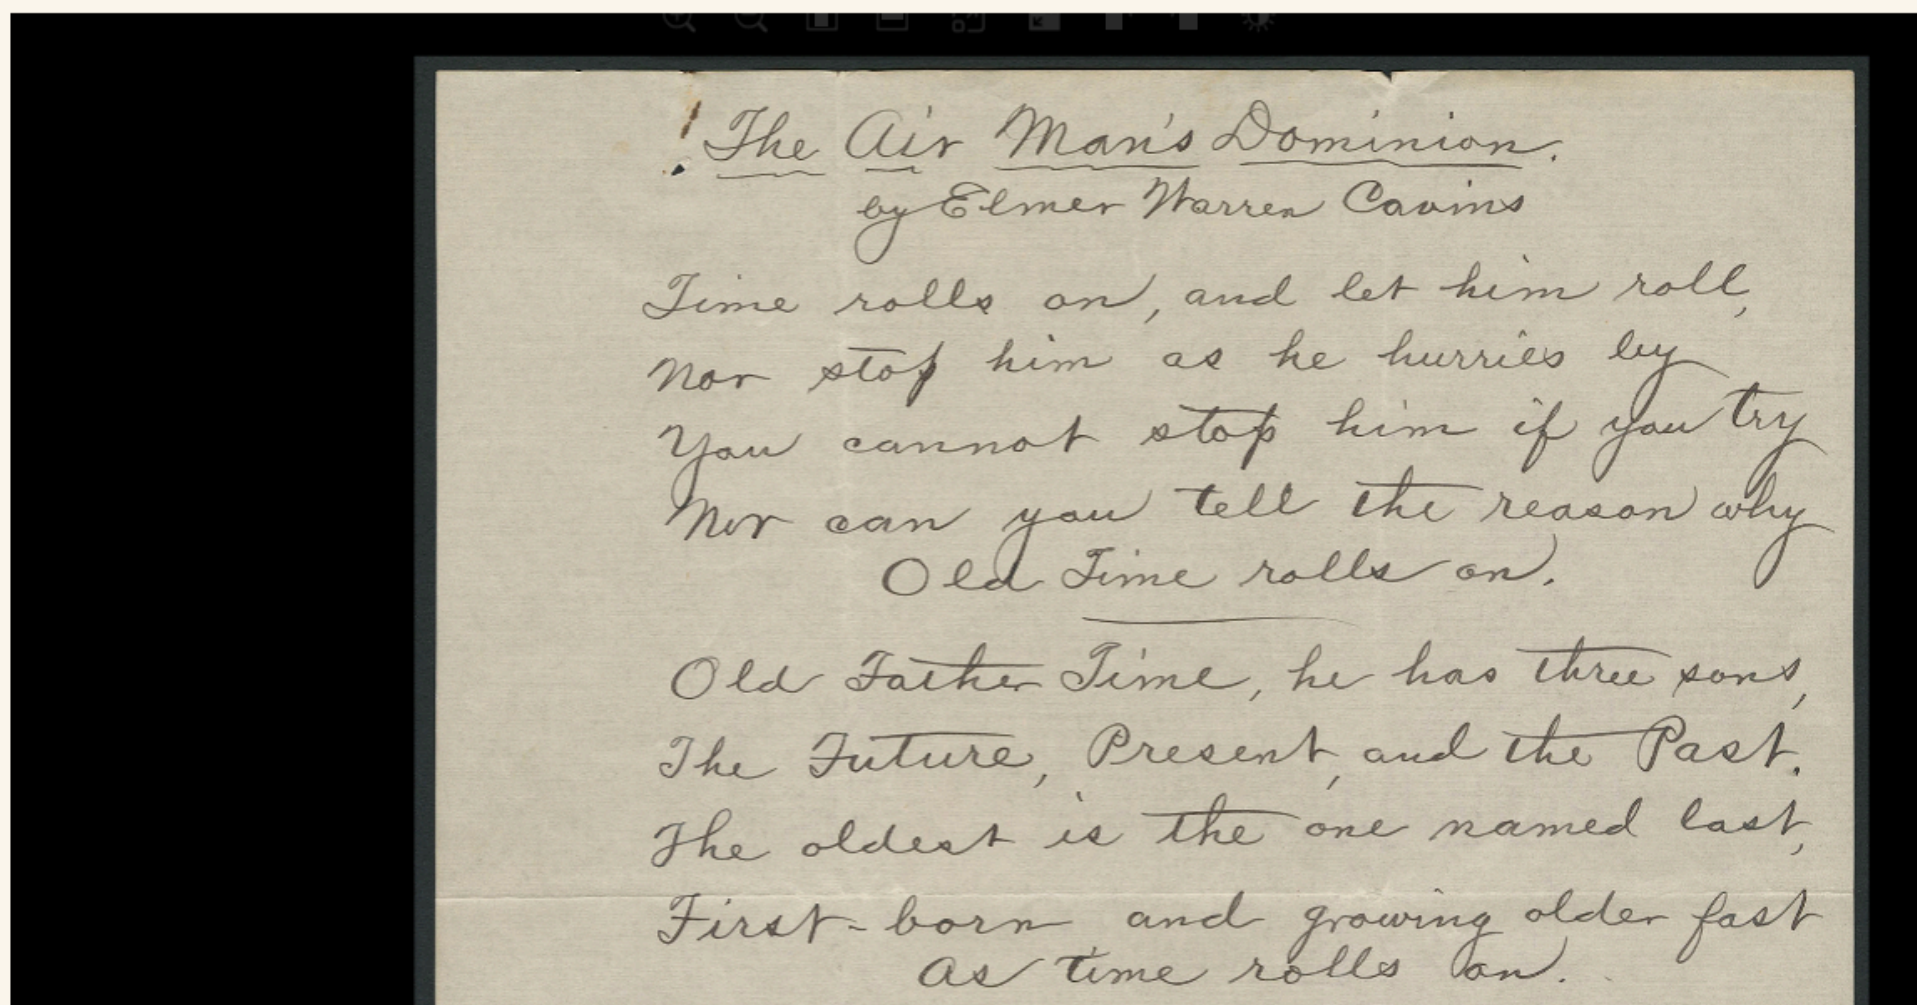 The Air Man's Dominion.
by Elmer Warren Cavins
Time rolls on, and let him roll,
Nor stop him as he hurries by
You cannot stop him if you try
Nor can you tell the reason why
Old Time rolls on.
Old Father Time, he has three sons,
The Future, Present, and the Past.
The oldest is the one named last,
First-born and growing older fast
As time rolls on.